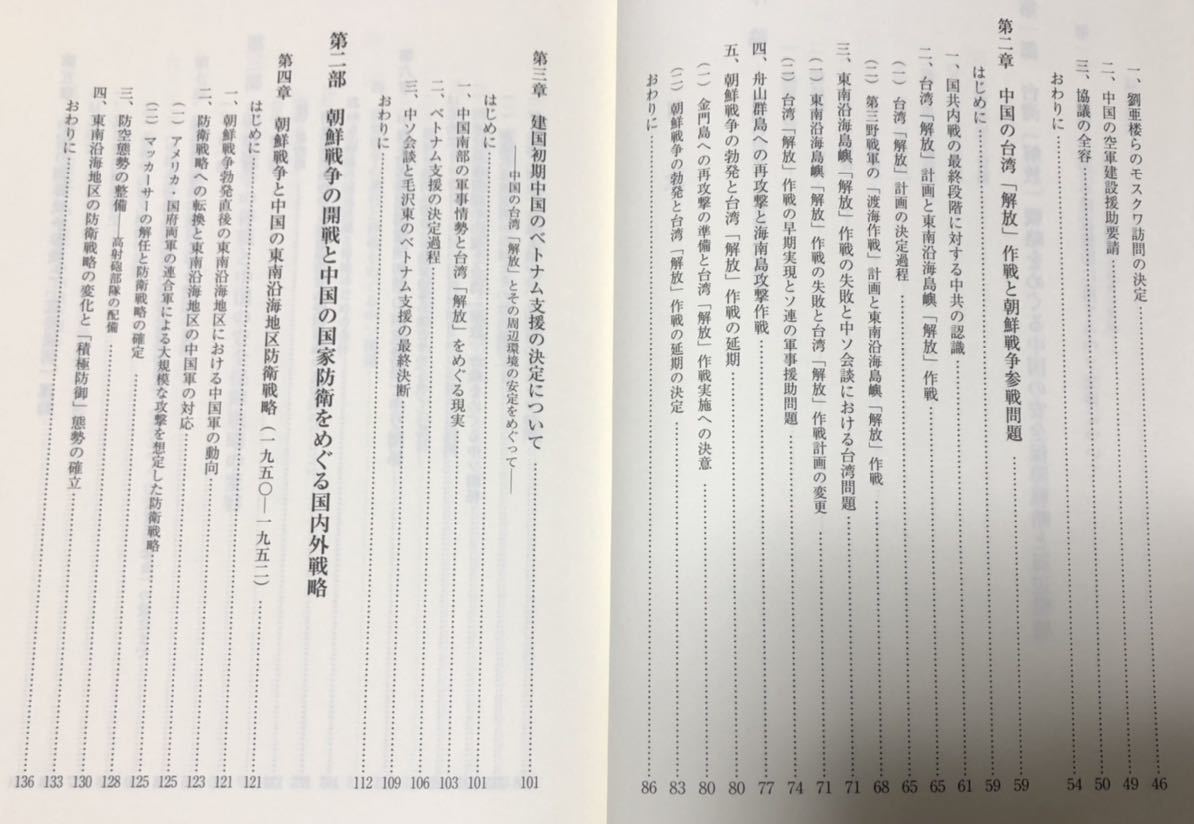 一、劉亜楼らのモスクワ訪問の決定……46
二、中国の空軍建設援助要請……49
三、協議の全容……50
おわりに……54
第二章　中国の台湾「解放」作戦と朝鮮戦争参戦問題……59
はじめに……59
一、国共内戦の最終段階に対する中共の認識……61
二、台湾「解放」計画と東南沿海島嶼「解放」作戦……65
(一) 台湾「解放」計画の決定過程……65
(二) 第三野戦軍の「渡海作戦」計画と東南沿海島嶼「解放」作戦……68
三、東南沿海島嶼「解放」作戦の失敗と中ソ会談における台湾問題……71
(一) 東南沿海島嶼「解放」作戦の失敗と台湾「解放」作戦計画の変更……71
(二) 台湾「解放」作戦の早期実現とソ連の軍事援助問題……74
四、舟山群島への再攻撃と海南島攻撃作戦……77
五、朝鮮戦争の勃発と台湾「解放」作戦の延期……80
(一) 金門島への再攻撃の準備と台湾「解放」作戦実施への決意……80
(二) 朝鮮戦争の勃発と台湾「解放」作戦の延期の決定……83
おわりに……86
第三章　建国初期中国のベトナム支援の決定について……101
――中国の台湾「解放」とその周辺環境の安定をめぐって――
はじめに……101
一、中国南部の軍事情勢と台湾「解放」をめぐる現実……103
二、ベトナム支援の決定過程……106
三、中ソ会談と毛沢東のベトナム支援の最終決断……109
おわりに……112
第二部　朝鮮戦争の開戦と中国の国家防衛をめぐる国内外戦略
第四章　朝鮮戦争と中国の東南沿海地区防衛戦略（一九五〇―一九五二）……121
はじめに……121
一、朝鮮戦争勃発直後の東南沿海地区における中国軍の動向……121
二、防衛戦略への転換と東南沿海地区の中国軍の対応……123
(一) アメリカ・国府両軍の連合軍による大規模な攻撃を想定した防衛戦略……125
(二) マッカーサーの解任と防衛戦略の確定……125
三、防空態勢の整備――高射砲部隊の配備……128
四、東南沿海地区の防衛戦略の変化と「積極防御」態勢の確立……130
おわりに……133
136